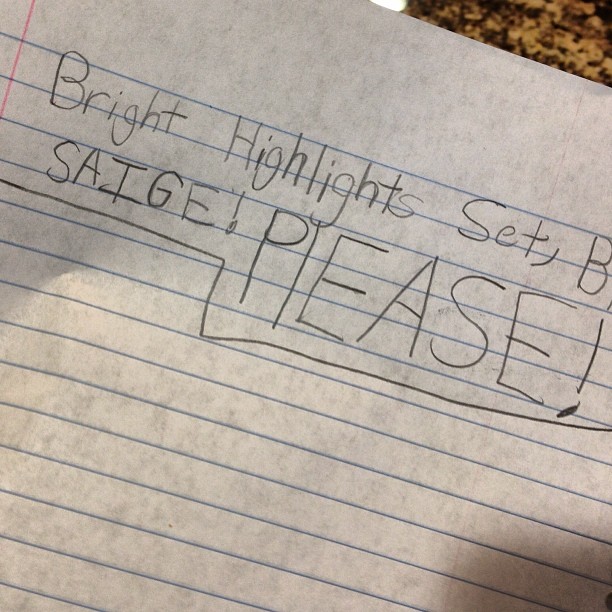 Bright Highlights Set, B
SAIGE! PlEASE!